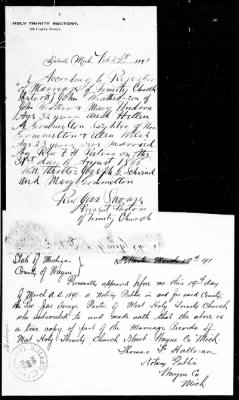 HOLY TRINITY RECTORY,
Detroit, Mich, Feb 21st 1891
According to Register
of Marriage of Trinity Church
Detroit John Walker son of
John Walker & Mary Hudson
Age 32 years and Hellen
M Commelton daughter of
Commelton & Ellen West
Age 23 years were married
day of August 1865
Witt.
and Mary Commelton
Rev Jas Savage
Present Pastor
of Trinity Church
State of Michigan
County of Wayne
March 19th 91
Personally appeared before me this 19th day
of March A.D. 1891 a Notary Public in and for said County
the Rev Jas Savage Pastor of Most Holy Trinity Church
who subscribed to and made oath that the above is
a true copy of part of the Marriage Records of
Most Holy Trinity Church Detroit Wayne Co Mich
Thomas F Halloran
Notary Public
Wayne Co
Mich